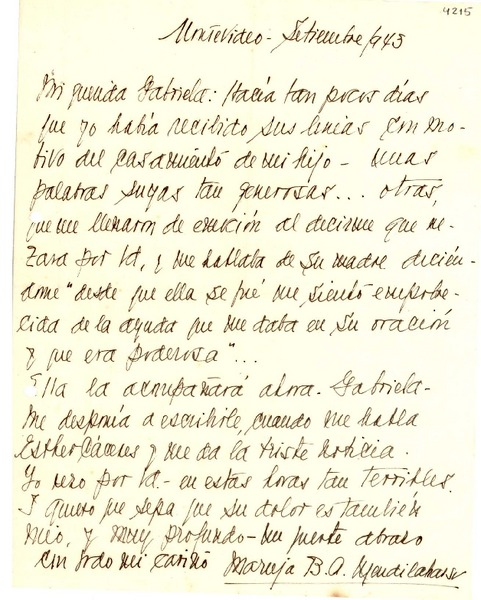 4215
Montevideo - Setiembre /943
Mi querida Gabriela: Hacía tan pocos días
que yo había recibido sus lineas con mo-
tivo del casamiento de mi hijo - unas
palabras suyas tan generosas... otras,
que me llenaron de emoción al decirme que re-
zara por Vd, y me hablaba de su madre dicién-
dome "desde que ella se fué me siento empobre-
cida de la ayuda que me daba en su oración
y que era poderosa"...
Ella la acompañará ahora. Gabriela -
Me disponía a escribirle, cuando me habla
Esther Cáceres y me da la triste noticia.
Yo rezo por Vd - en estas horas tan terribles.
I quiero que sepa que su dolor es también
mío, y muy profundo - Un fuerte abrazo
con todo mi cariño Maruja B. A.